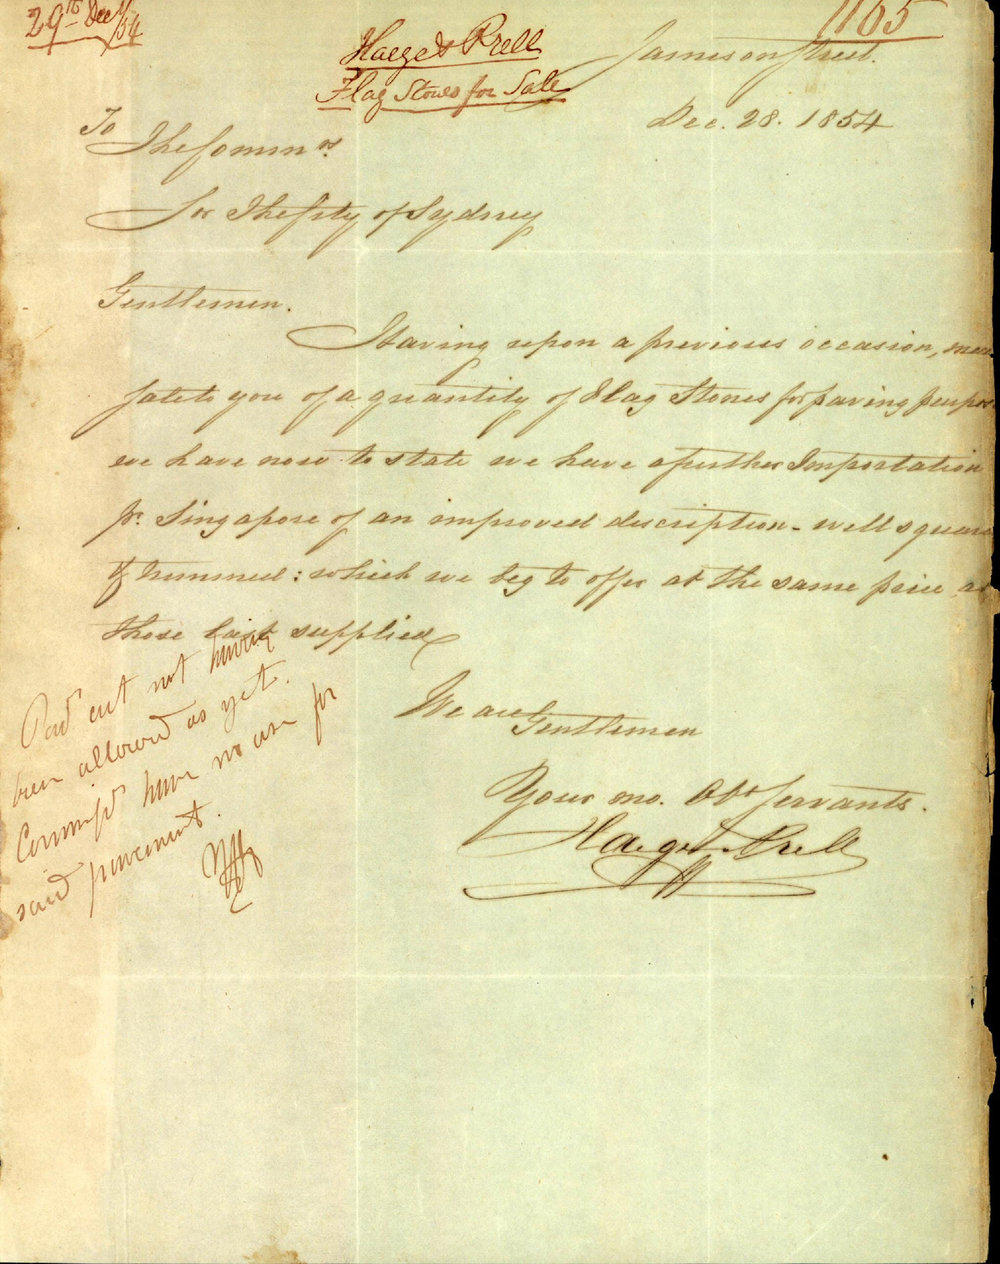 29th Decr/54
1165
Haege & Prell
Flag Stones for Sale
Jamieson Street.
Dec. 28. 1854
To
The Commrs.
for The City of Sydney
Gentlemen.
Having upon a previous occasion,
to you of a quantity of Flag Stones for paving
we have now to state we have a further Importation
pr. Singapore of an improved description - well
& trimmed: which we beg to offer at the same price as
those last supplied
We are
Gentlemen
Your mo. Obt Servants.
Haege & Prell
not having
been allowed as yet.
have no use for
said pavement.